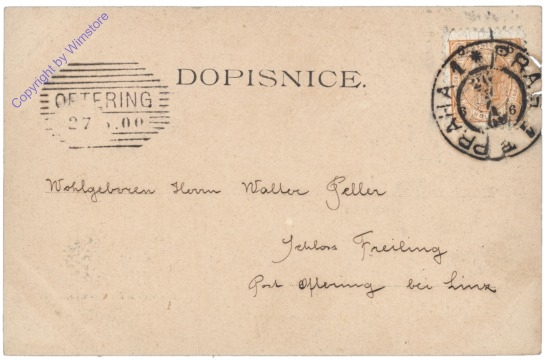 Copyright by Wimstore
DOPISNICE.
OFTERING
27 00
PRAHA 1 * PRAG
Wohlgeboren Herrn Walter Peller
Schloss Freiling
Post Oftering bei Linz